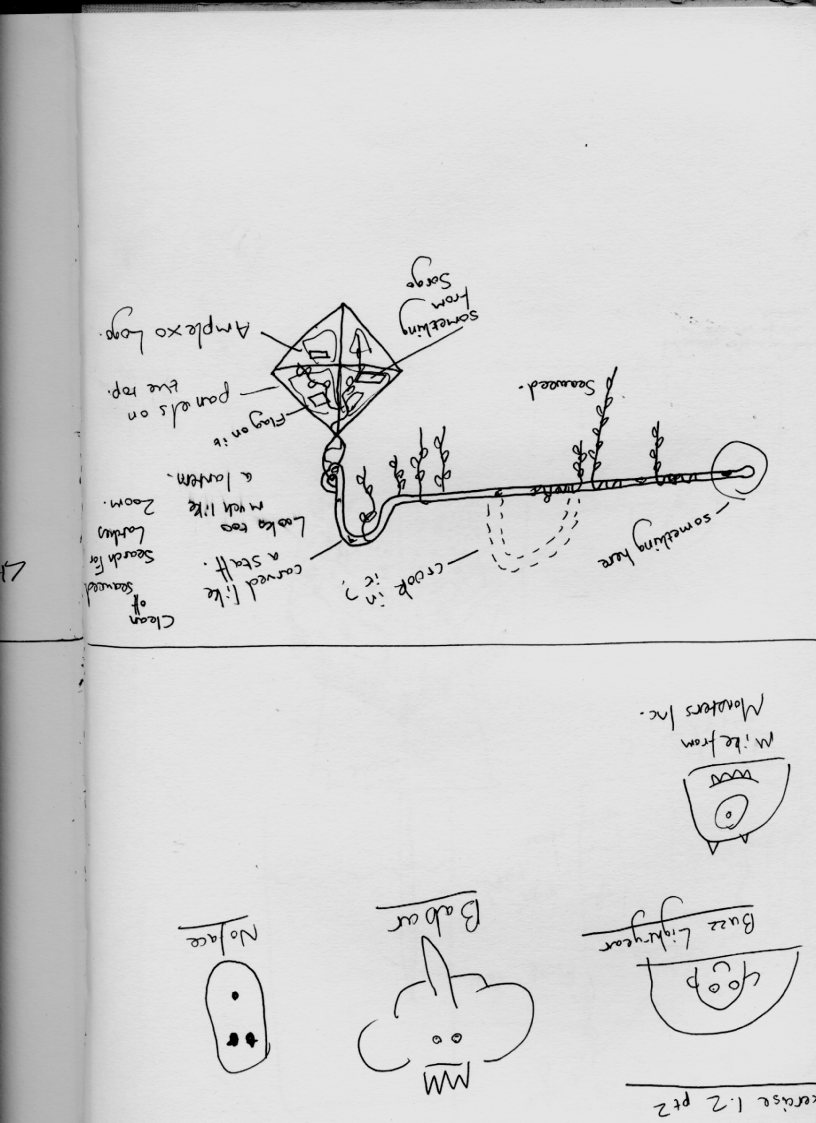 xercise 1.2 pt 2
Buzz Lightyear
Babar
No face
Mike from
Monsters Inc.
something here
crook in
it?
carved like
a staff.
Looks too
much like
a lantern.
Clean
off
seaweed
Search For
Latches
Zoom.
Seaweed.
Flag on it
panels on
the top.
Amplexo Logo.
something
from
Sorgo